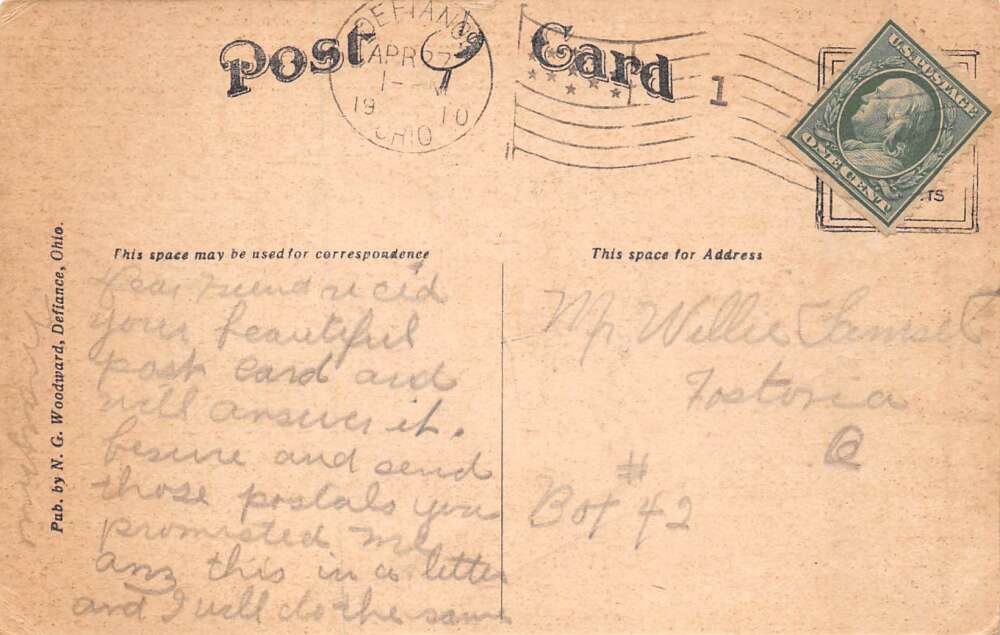 Post Card
DEFIANCE
APR 27
1- M
19 10
OHIO
1
U.S. POSTAGE
ONE CENT
TS
This space may be used for correspondence
This space for Address
Pub. by N. G. Woodward, Defiance, Ohio.
Dear Friend rec'd
your beautiful
post card and
will answer it.
besure and send
those postals you
promisted me
anz this in a letter
and I will do the same
Mr Willie
Fostoria
O
Box # 42